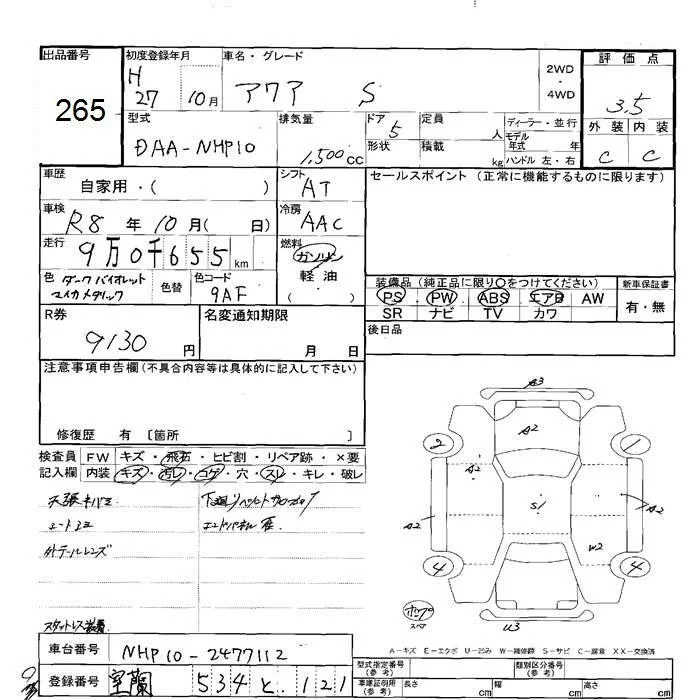 出品番号
265
初度登録年月
H
27 10月
車名・グレード
アクア S
2WD
・
4WD
評価点
3.5
外装 内装
C C
型式
DAA-NHP10
排気量
1,500cc
ドア
5
形状
定員
人
積載
kg
ディーラー・並行
モデル
年式 年
ハンドル 左・右
車歴
自家用・( )
シフト
AT
セールスポイント (正常に機能するものに限ります)
車検
R8年 10月( 日)
冷房
AAC
走行
9万0千655km
燃料
ガソリン
軽油
( )
色 ダークバイオレット
マイカメタリック
色替
色コード
9AF
装備品(純正品に限り〇をつけてください)
PS・PW・ABS・エアB・AW
SR ナビ TV カワ
新車保証書
有・無
R券
9130円
名変通知期限
月 日
後日品
注意事項申告欄(不具合内容等は具体的に記入して下さい)
修復歴 有 〔箇所 〕
検査員
記入欄
FW キズ・飛石・ヒビ割・リペア跡・×要
内装 キズ・汚レ・コゲ・穴・スレ・キレ・破レ
天張キバミ
外テールレンズ
A3
A2
2
1
A2
A2
S1
A2
W2
4
4
U3
スペア
A-キズ E-エクボ U-凹み W-補修跡 S-サビ C-腐食 XX-交換済
車台番号
NHP10-2477112
登録番号
室蘭 534 と 121
型式指定番号
(参考)
類別区分番号
(参考)
車庫証明用
(参考)
長さ cm
幅 cm
高さ cm